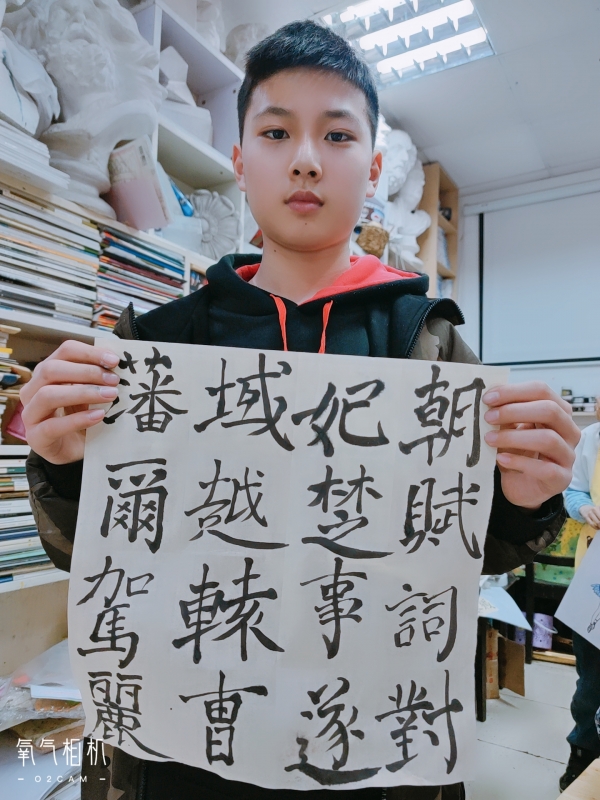 朝賦詞對
妃楚事遂
域越轅曹
藩爾駕麗
氧气相机
- O2CAM -